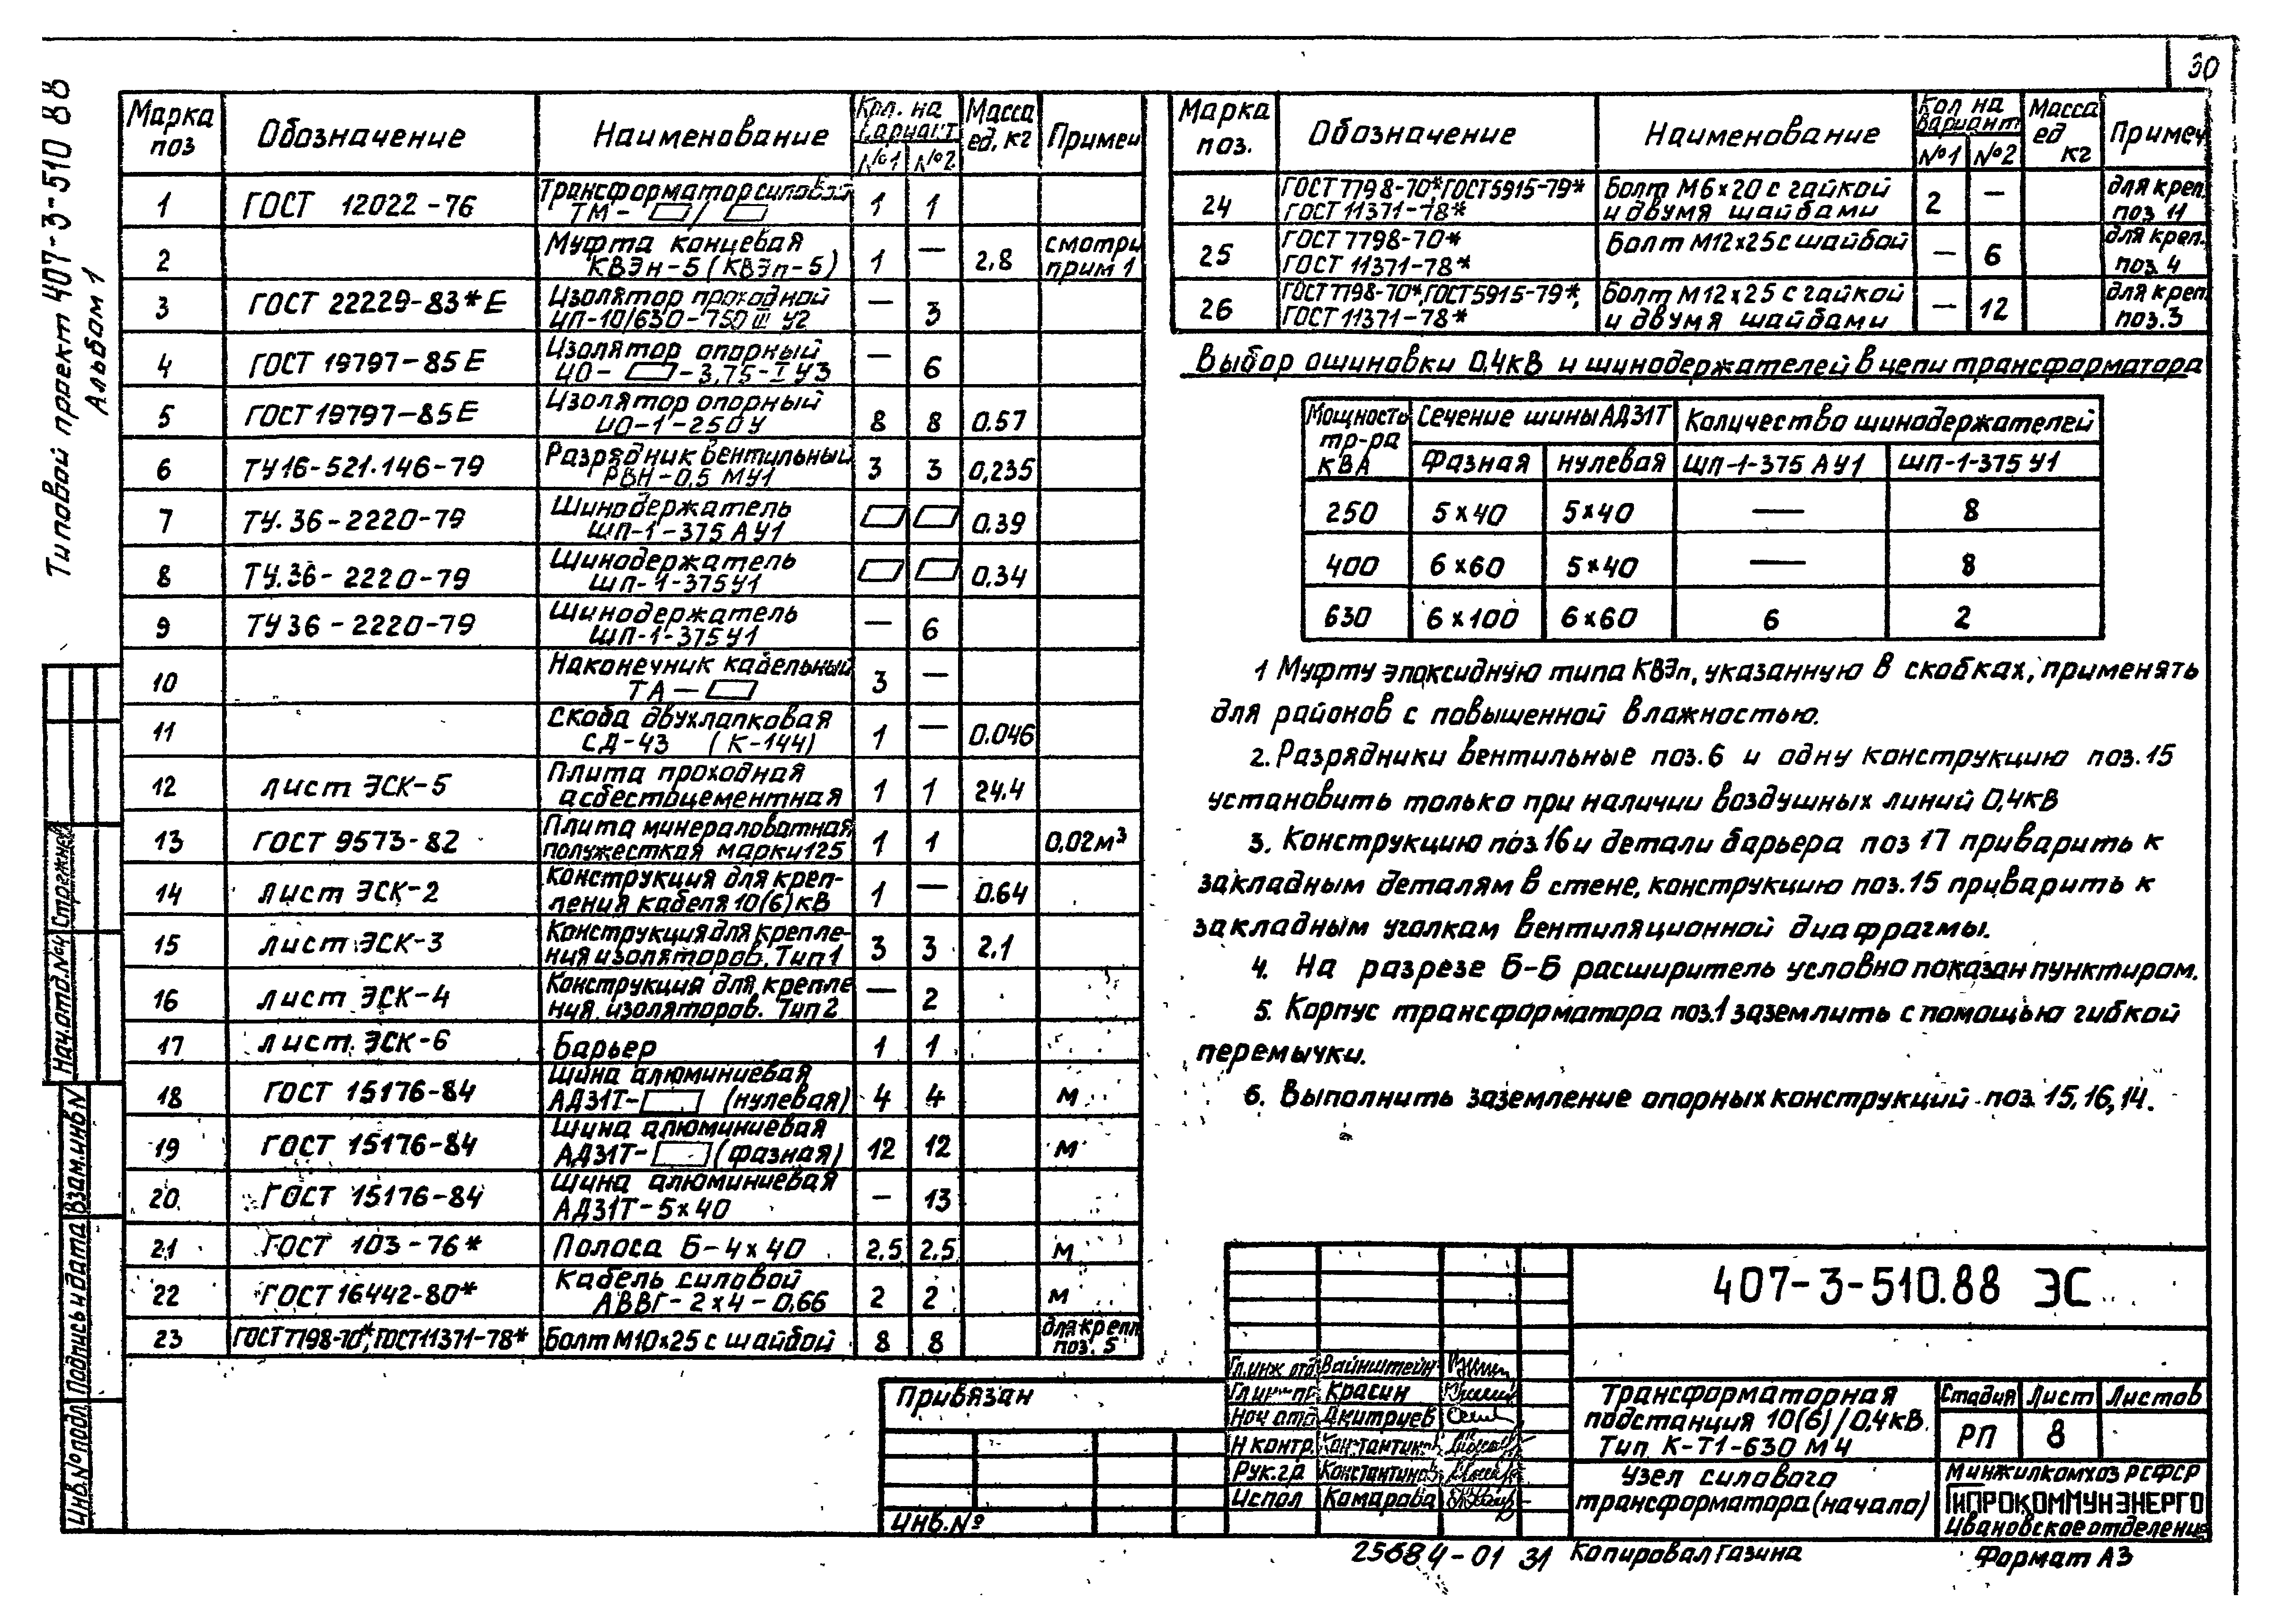 30
Типовой проект 407-3-510 88
Альбом 1
Марка поз Обозначение Наименование Кол. на вариант №1 №2 Масса ед, кг Примеч
1 ГОСТ 12022-76 Трансформатор силовой ТМ- / 1 1
2 Муфта концевая КВЭн-5 (КВЭп-5) 1 — 2,8 смотри прим 1
3 ГОСТ 22229-83*Е Изолятор проходной ИП-10/630-750 III У2 — 3
4 ГОСТ 19797-85Е Изолятор опорный ИО- -3,75-I У3 — 6
5 ГОСТ 19797-85Е Изолятор опорный ИО-1-250У 8 8 0.57
6 ТУ16-521.146-79 Разрядник вентильный РВН-0,5 МУ1 3 3 0,235
7 ТУ.36-2220-79 Шинодержатель ШП-1-375 АУ1 0.39
8 ТУ.36-2220-79 Шинодержатель ШП-1-375У1 0.34
9 ТУ36-2220-79 Шинодержатель ШП-1-375У1 — 6
10 Наконечник кабельный ТА- 3 —
11 Скоба двухлапковая СД-43 (К-144) 1 — 0.046
12 лист ЭСК-5 Плита проходная асбестоцементная 1 1 24.4
13 ГОСТ 9573-82 Плита минераловатная полужесткая марки125 1 1 0,02м³
14 лист ЭСК-2 Конструкция для крепления кабеля 10(6)кВ 1 — 0.64
15 лист ЭСК-3 Конструкция для крепления изоляторов. Тип1 3 3 2.1
16 лист ЭСК-4 Конструкция для крепления изоляторов. Тип2 — 2
17 лист. ЭСК-6 Барьер 1 1
18 ГОСТ 15176-84 Шина алюминиевая АД31Т- (нулевая) 4 4 м
19 ГОСТ 15176-84 Шина алюминиевая АД31Т- (фазная) 12 12 м
20 ГОСТ 15176-84 Шина алюминиевая АД31Т-5×40 — 13
21 ГОСТ 103-76* Полоса Б-4×40 2.5 2.5 м
22 ГОСТ 16442-80* Кабель силовой АВВГ-2×4-0,66 2 2 м
23 ГОСТ7798-70*,ГОСТ11371-78* Болт М10×25 с шайбой 8 8 для крепл поз. 5
Марка поз. Обозначение Наименование Кол на вариант №1 №2 Масса ед кг Примеч
24 ГОСТ7798-70*ГОСТ5915-79* ГОСТ11371-78* Болт М6×20 с гайкой и двумя шайбами 2 — для креп. поз 11
25 ГОСТ7798-70* ГОСТ 11371-78* Болт М12×25 с шайбой — 6 для креп. поз 4
26 ГОСТ7798-70*,ГОСТ5915-79*, ГОСТ11371-78* Болт М12×25 с гайкой и двумя шайбами — 12 для креп поз.3
Выбор ошиновки 0,4кВ и шинодержателей в цепи трансформатора
Мощность тр-ра кВА Сечение шины АД31Т Количество шинодержателей
фазная нулевая ШП-1-375 АУ1 ШП-1-375 У1
250 5×40 5×40 — 8
400 6×60 5×40 — 8
630 6×100 6×60 6 2
1 Муфту эпоксидную типа КВЭп, указанную в скобках, применять
для районов с повышенной влажностью.
2. Разрядники вентильные поз.6 и одну конструкцию поз.15
установить только при наличии воздушных линий 0,4кВ
3. Конструкцию поз 16 и детали барьера поз 17 приварить к
закладным деталям в стене, конструкцию поз.15 приварить к
закладным уголкам вентиляционной диафрагмы.
4. На разрезе Б-Б расширитель условно показан пунктиром.
5. Корпус трансформатора поз.1 заземлить с помощью гибкой
перемычки.
6. Выполнить заземление опорных конструкций поз 15,16,14.
Нач.отд.№4 Стрежнев
Взам.инв N
Подпись и дата
Инв.№ подл.
Привязан
Инв.№
407-3-510.88 ЭС
Гл.инж отд Вайнштейн
Гл инж пр Красин
Нач отд Дмитриев
Н контр. Константинов
Рук.гр Константинов
Испол Комарова
Трансформаторная
подстанция 10(6)/0,4кВ.
Тип К-Т1-630 М4
Стадия Лист Листов
РП 8
Узел силового
трансформатора (начало)
Минжилкомхоз РСФСР
ГИПРОКОММУНЭНЕРГО
Ивановское отделение
25684-01 31 Копировал Газина Формат А3